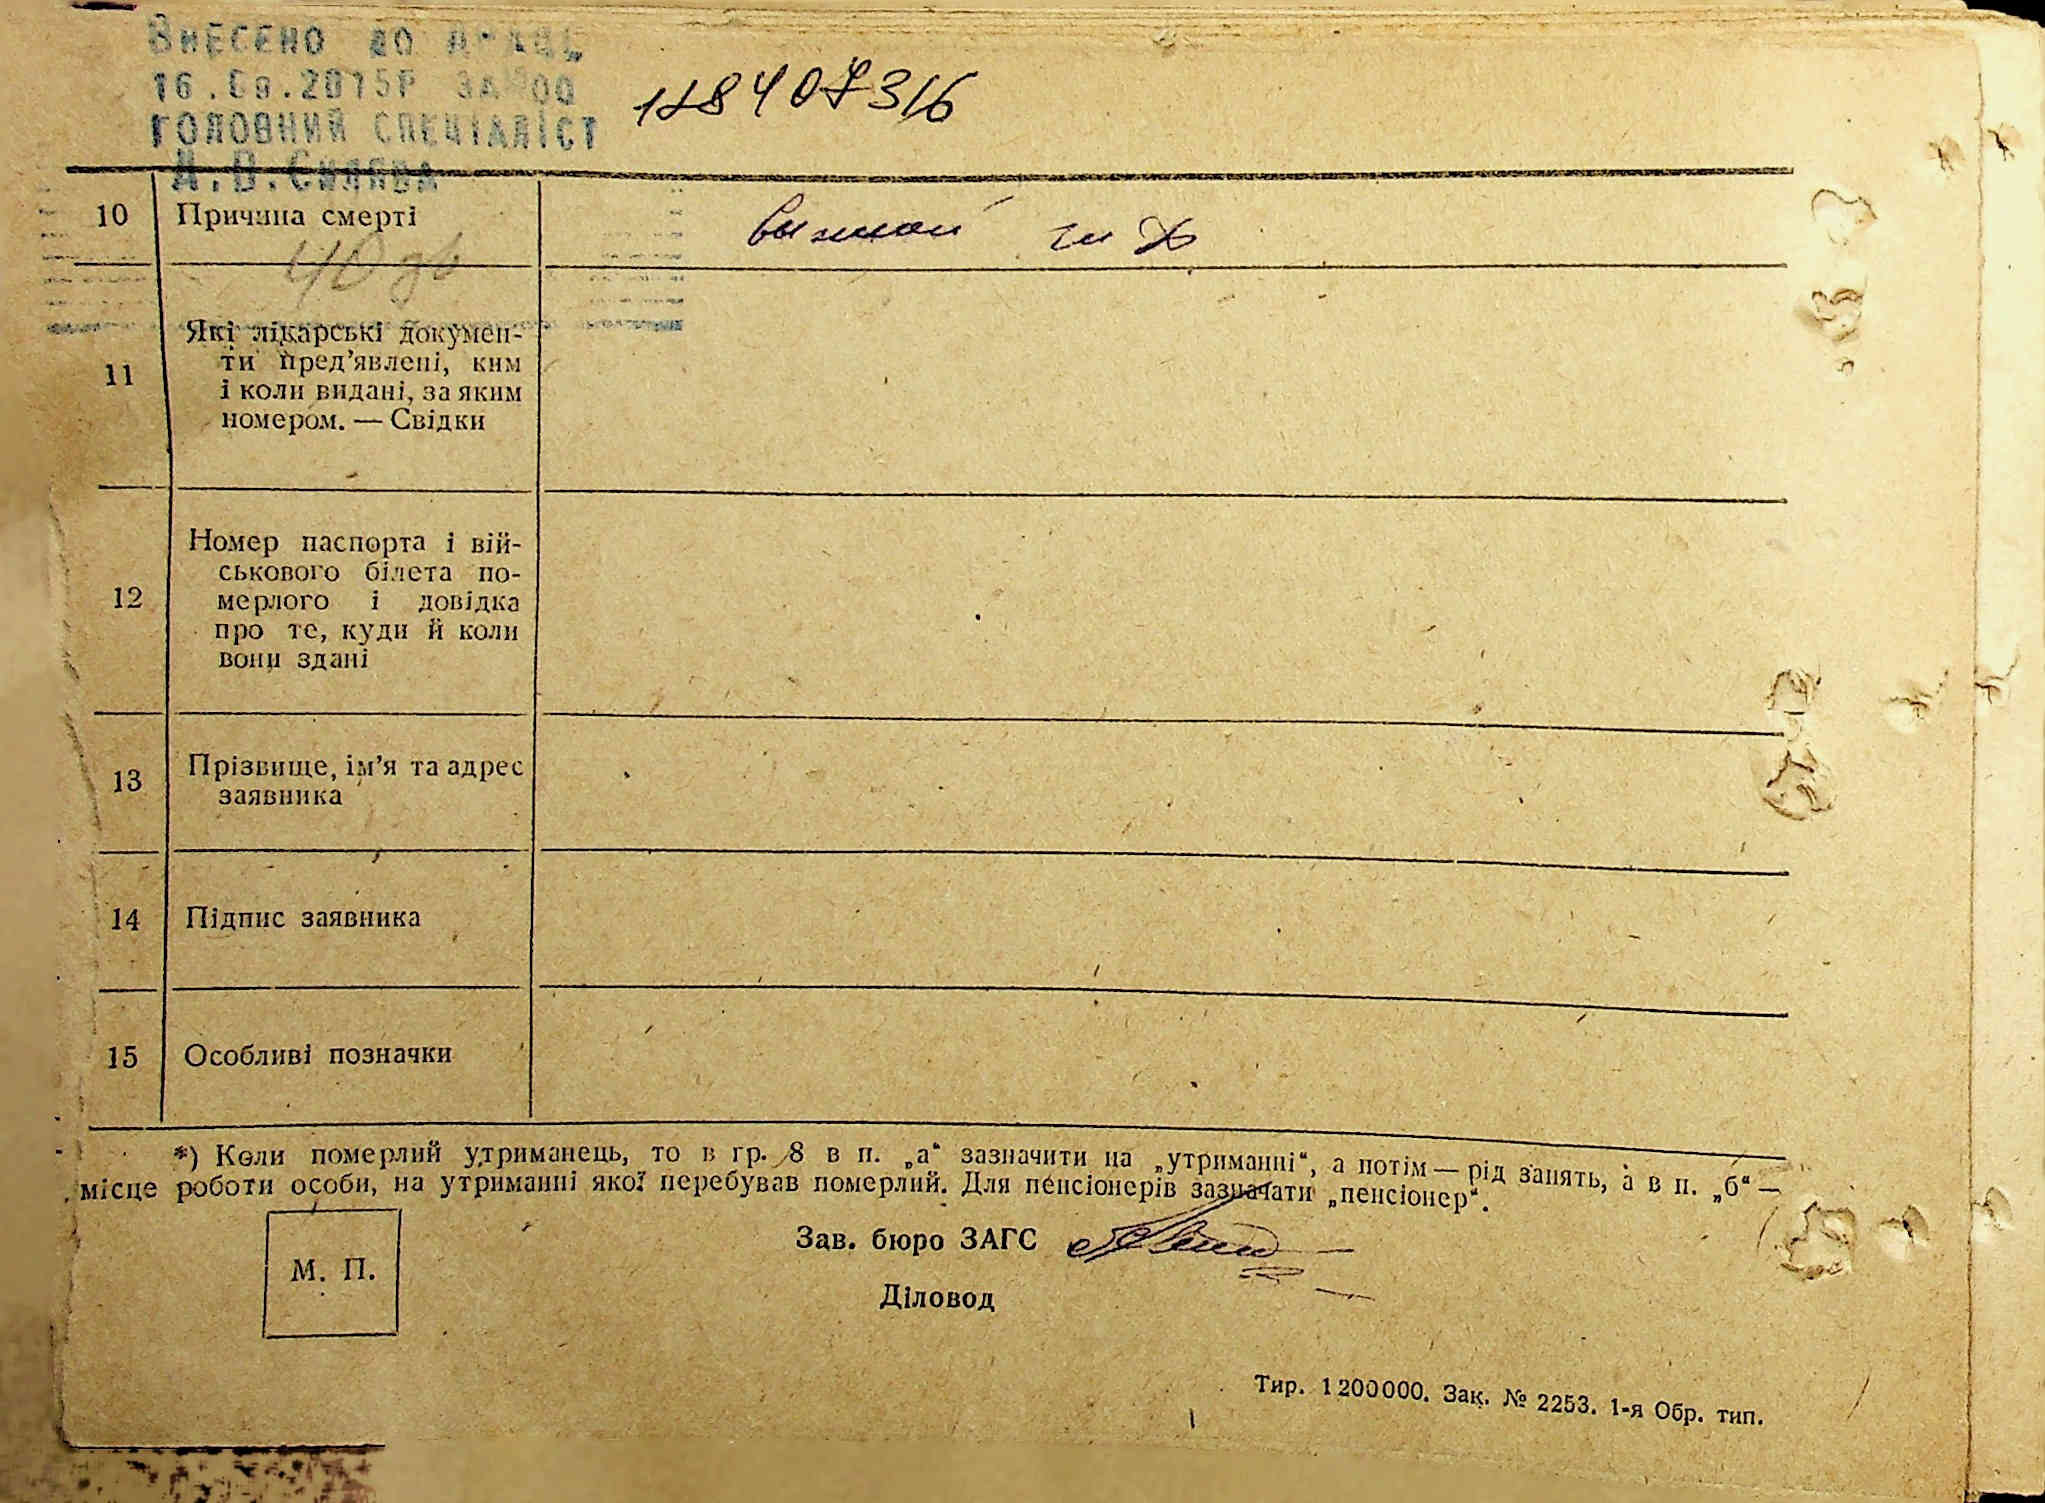 Внесено до
16.09.2015р за 00
головний спеціаліст
10 Причина смерті
11 Які лікарські докумен-
ти пред’явлені, ким
і коли видані, за яким
номером. — Свідки
12 Номер паспорта і вій-
ськового білета по-
мерлого і довідка
про те, куди й коли
вони здані
13 Прізвище, ім’я та адрес
заявника
14 Підпис заявника
15 Особливі позначки
*) Коли померлий утриманець, то в гр. 8 в п. „а“ зазначити на „утриманні“, а потім — рід занять, а в п. „б“ —
місце роботи особи, на утриманні якої перебував померлий. Для пенсіонерів зазначати „пенсіонер“.
М. П.
Зав. бюро ЗАГС
Діловод
Тир. 1200000. Зак. № 2253. 1-я Обр. тип.